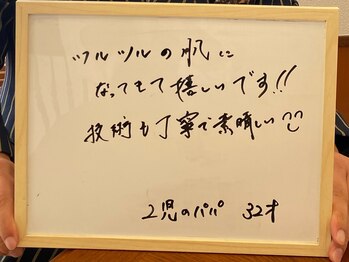 ツルツルの肌に
なってきて嬉しいです!!
技術も丁寧で素晴しい
2児のパパ 32才